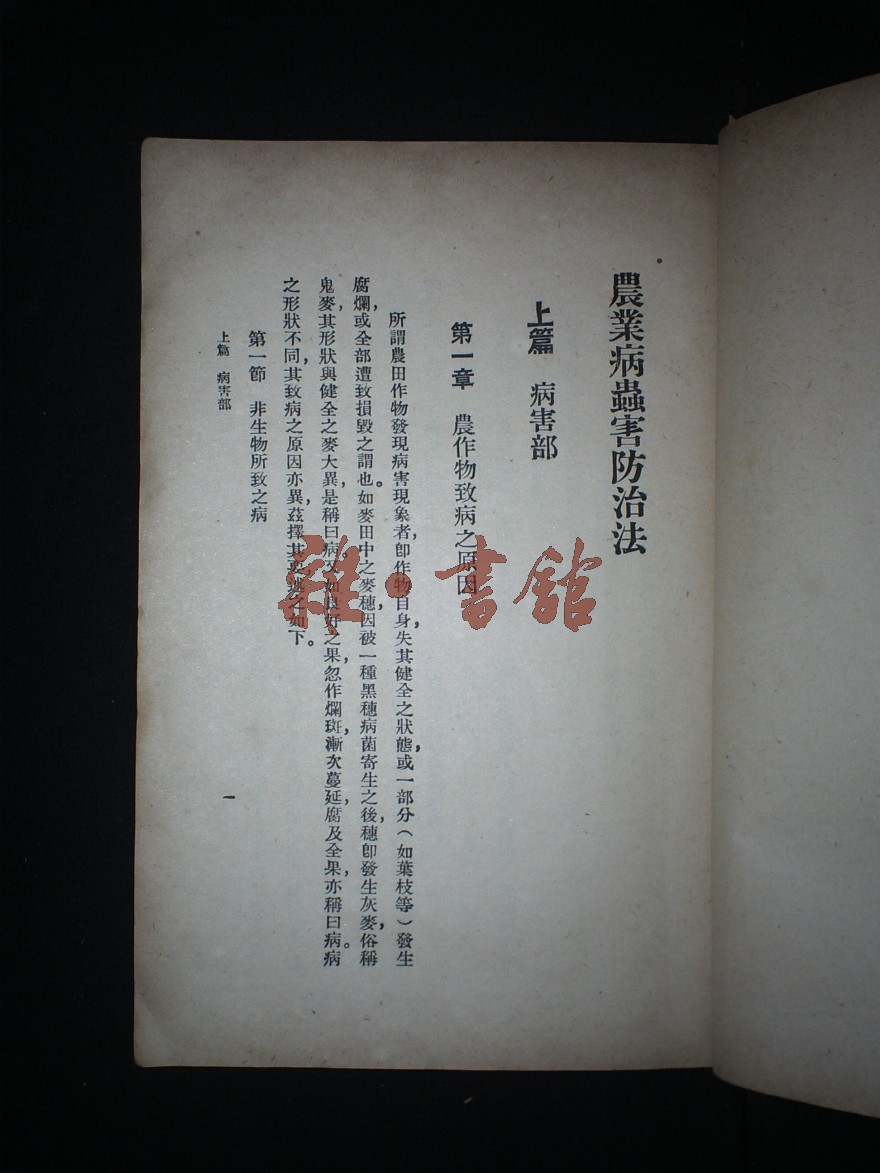 農業病蟲害防治法
上篇　病害部
第一章　農作物致病之原因
所謂農田作物發現病害現象者，卽作物自身失其健全之狀態，或一部分（如葉枝等）發生
腐爛，或全部遭致損毀之謂也。如麥田中之麥穗，因被一種黑穗病菌寄生之後，穗卽發生灰麥，俗稱
鬼麥，其形狀與健全之麥大異，是稱曰病。又如良好之果，忽作爛斑，漸次蔓延，腐及全果，亦稱曰病。病
之形狀不同，其致病之原因亦異，茲擇其要述之如下。
第一節　非生物所致之病
上篇　病害部
一
雜·書館